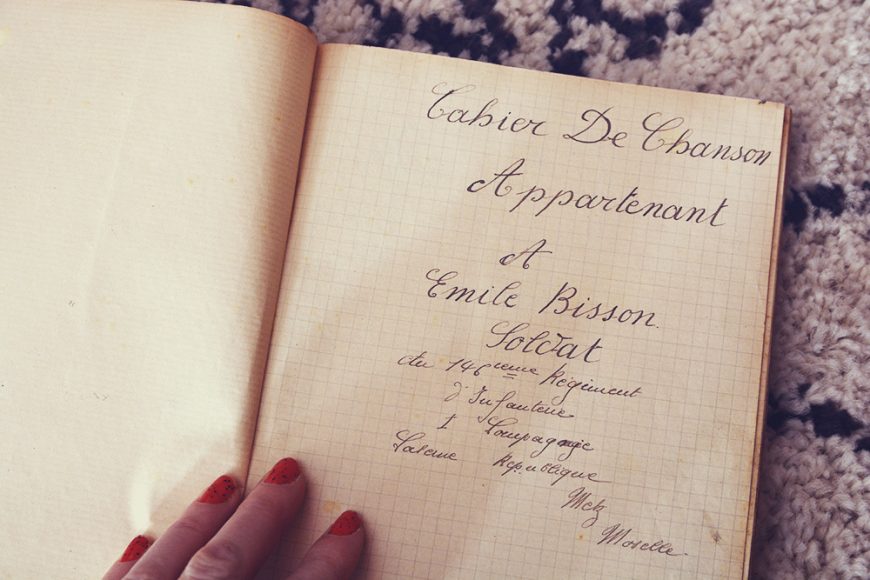 Cahier De Chanson
Appartenant
A
Emile Bisson.
Soldat
du 146ieme Régiment
d'Infanterie
1 Compagnie
Caserne République
Metz
Moselle